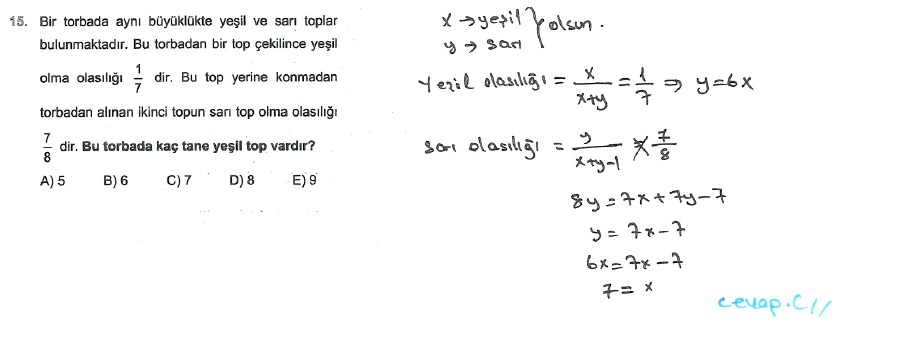 15. Bir torbada aynı büyüklükte yeşil ve sarı toplar
bulunmaktadır. Bu torbadan bir top çekilince yeşil
olma olasılığı 1/7 dir. Bu top yerine konmadan
torbadan alınan ikinci topun sarı top olma olasılığı
7/8 dir. Bu torbada kaç tane yeşil top vardır?
A) 5 B) 6 C) 7 D) 8 E) 9
x → yeşil } olsun.
y → sarı
Yeşil olasılığı = x/(x+y) = 1/7 ⇒ y=6x
Sarı olasılığı = y/(x+y-1) = 7/8
8y = 7x + 7y - 7
y = 7x - 7
6x = 7x - 7
7 = x
cevap.C//